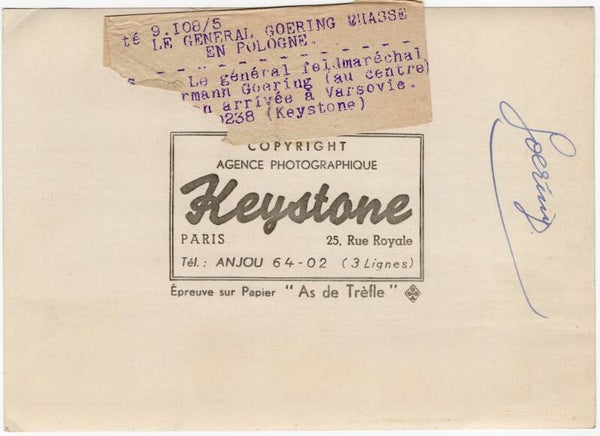 té 9.108/5
LE GENERAL GOERING CHASSE
EN POLOGNE.
Le général feldmaréchal
rmann Goering (au centre)
on arrivée à Varsovie.
0238 (Keystone)
COPYRIGHT
AGENCE PHOTOGRAPHIQUE
Keystone
PARIS 25, Rue Royale
Tél.: ANJOU 64-02 (3 Lignes)
Épreuve sur Papier "As de Trèfle"
Goering